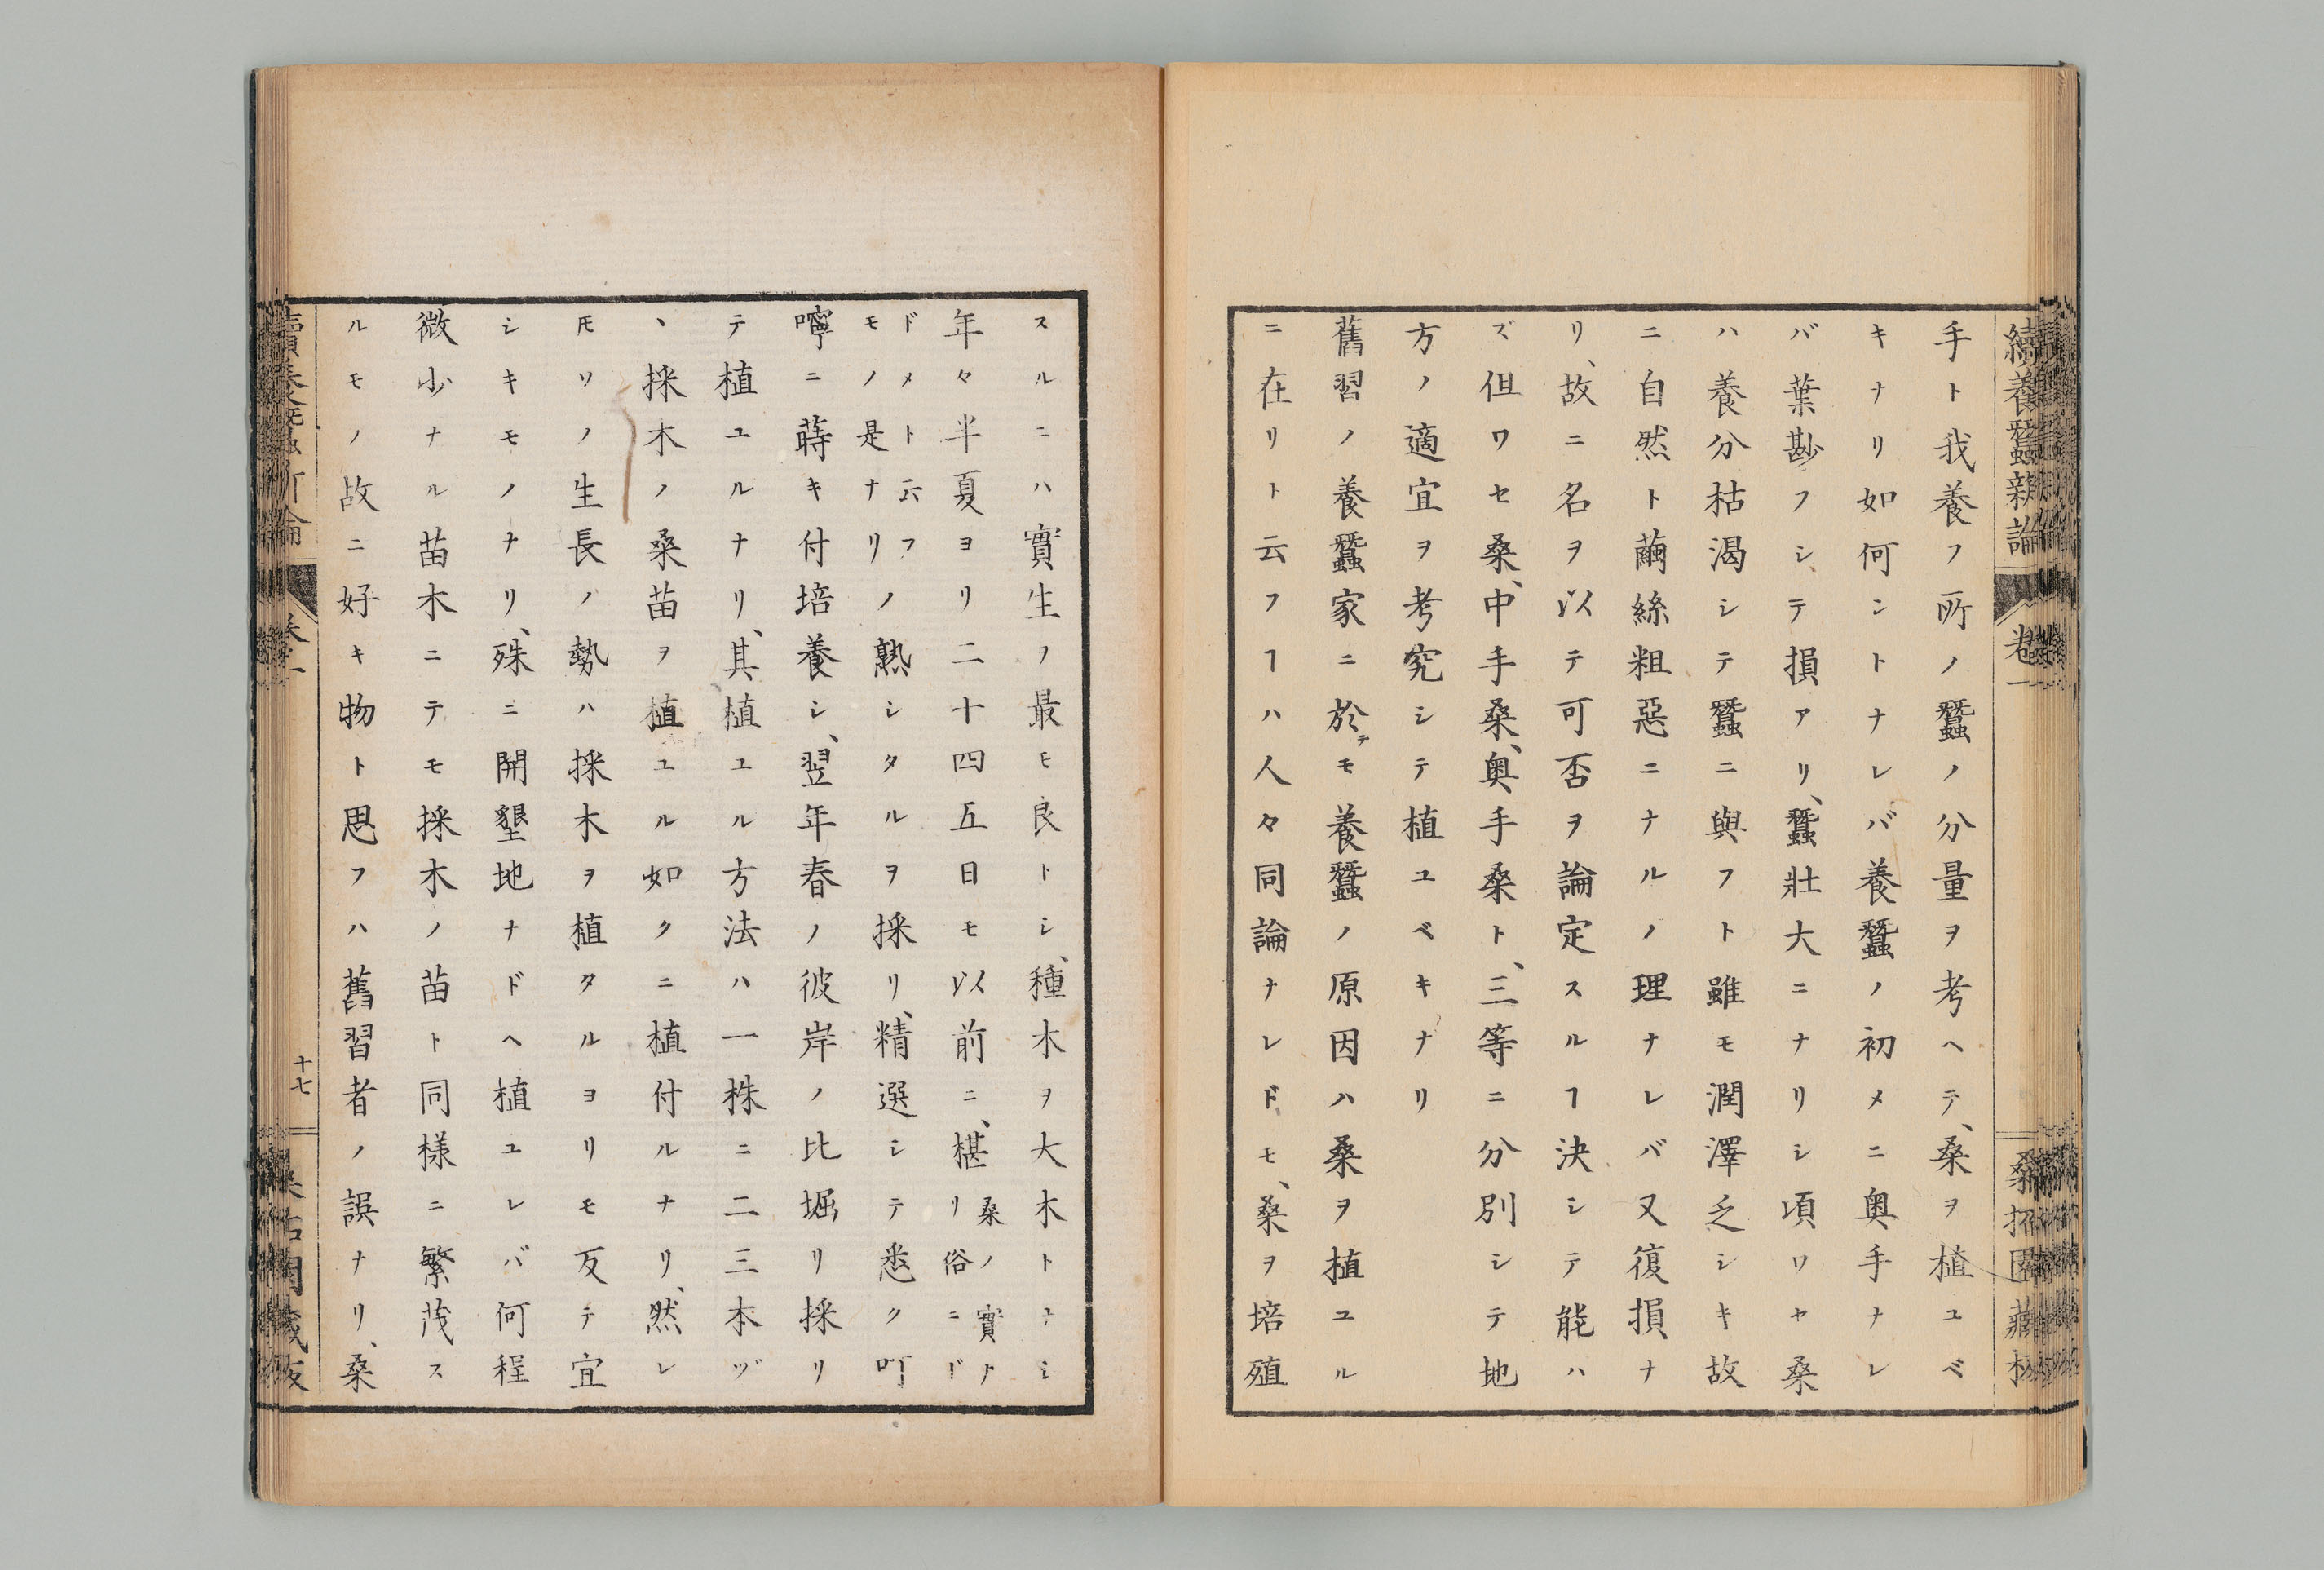 續養蠶新論 卷一 桑拓園藏板
手ト我養フ所ノ蠶ノ分量ヲ考ヘテ、桑ヲ植ユベ
キナリ如何ントナレバ養蠶ノ初メニ奥手ナレ
バ葉尠フシテ損アリ、蠶壯大ニナリシ頃ワヤ桑
ハ養分枯渇シテ蠶ニ與フト雖モ潤澤乏シキ故
ニ自然ト繭絲粗惡ニナルノ理ナレバ又復損ナ
リ、故ニ名ヲ以テ可否ヲ論定スルヿ決シテ能ハ
ズ但ワセ桑、中手桑、奥手桑ト、三等ニ分別シテ地
方ノ適宜ヲ考究シテ植ユベキナリ
舊習ノ養蠶家ニ於テモ養蠶ノ原因ハ桑ヲ植ユル
ニ在リト云フヿハ人々同論ナレドモ、桑ヲ培殖
スルニハ實生ヲ最モ良トシ、種木ヲ大木トヨシ
年々半夏ヨリ二十四五日モ以前ニ、椹リ桑ノ實ナリ俗ニド
ドメト云フモノ是ナリノ熟シタルヲ採リ、精選シテ悉ク叮
嚀ニ蒔キ付培養シ、翌年春ノ彼岸ノ比堀リ採リ
テ植ユルナリ、其植ユル方法ハ一株ニ二三本ヅ
、採木ノ桑苗ヲ植ユル如クニ植付ルナリ、然レ
𪜈ソノ生長ノ勢ハ採木ヲ植タルヨリモ反テ宜
シキモノナリ、殊ニ開墾地ナドヘ植ユレバ何程
微少ナル苗木ニテモ採木ノ苗ト同様ニ繁茂ス
ルモノ故ニ好キ物ト思フハ舊習者ノ誤ナリ、桑
十七